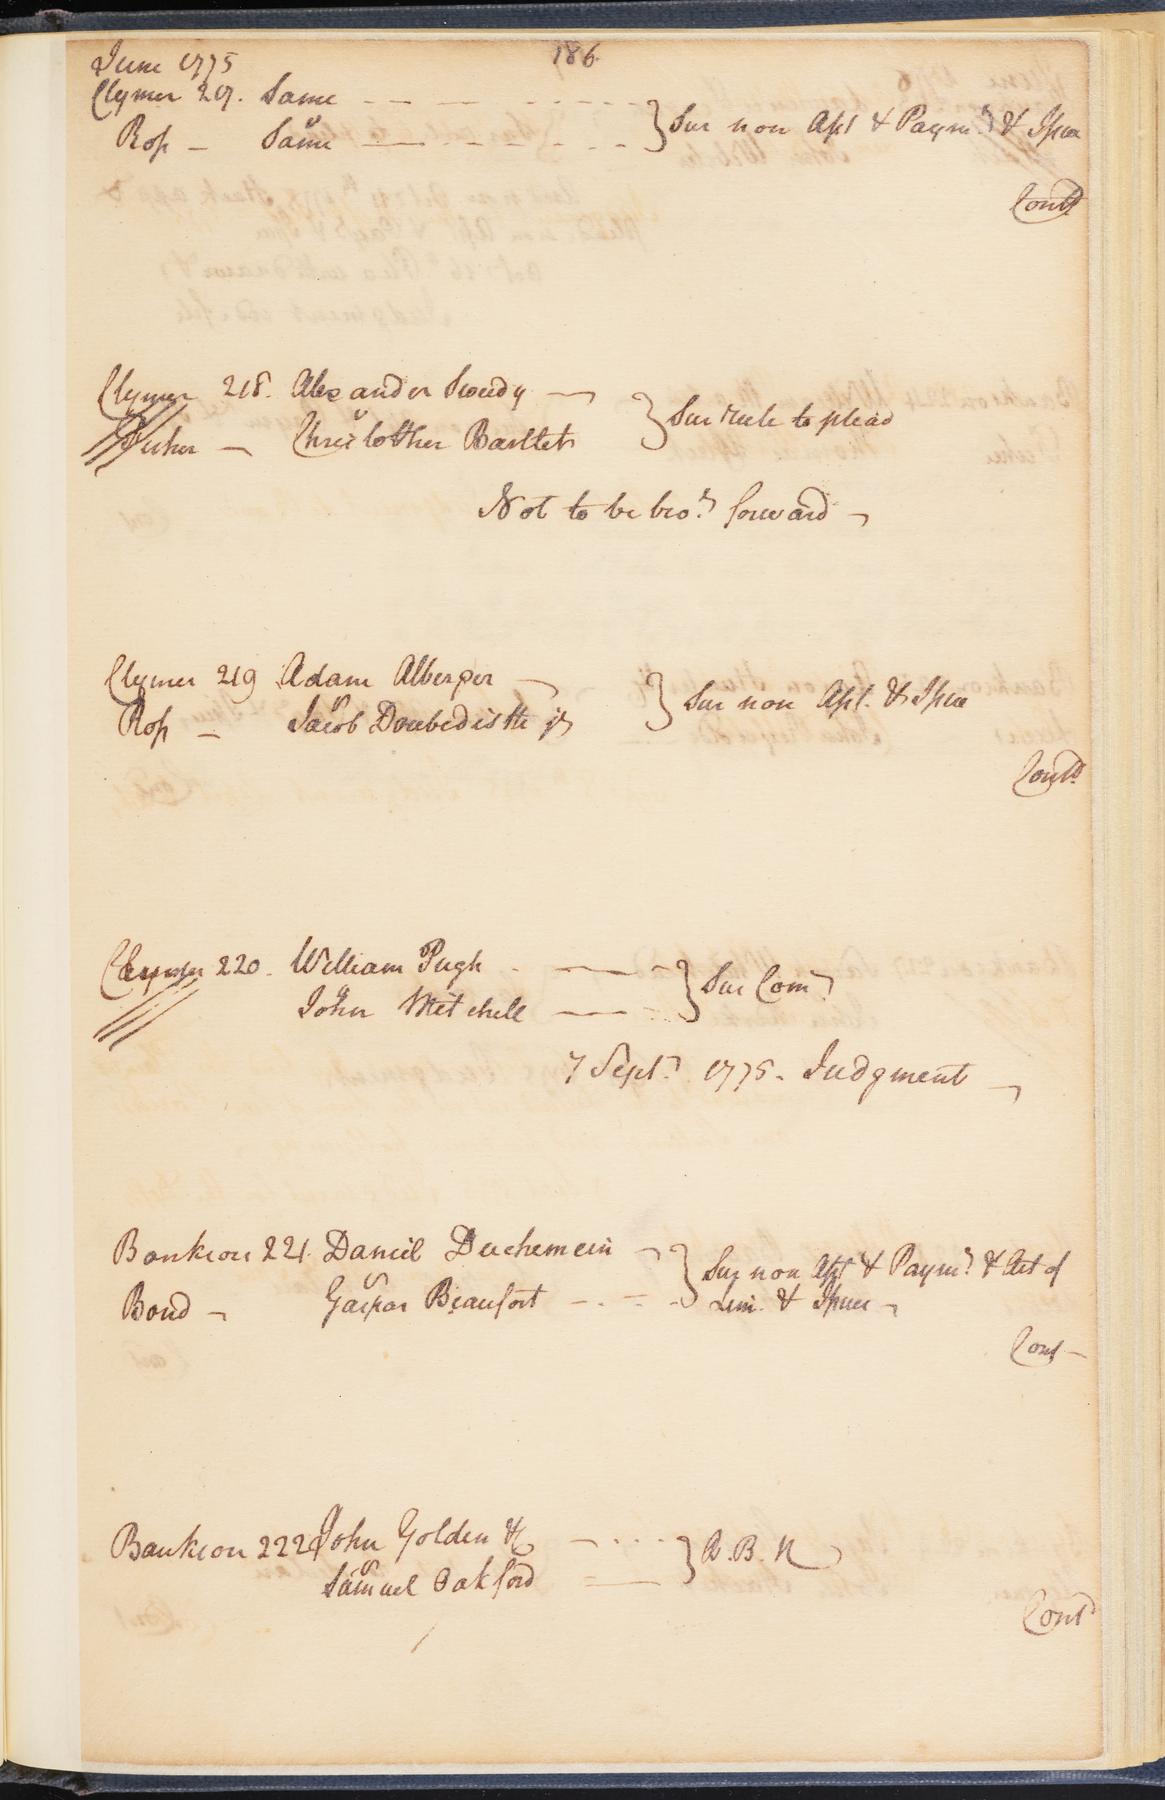 186
June 1775
Clymer 217. Same
Ross Same
Sur non Asst & Paymt & Issue
Contd
Clymer 218. Alexander
v
Christopher Bartlet
Sur rule to plead
Not to be brot forward
Clymer 219 Adam Alberger
v
Ross Jacob Doubedisttle jr
Sur non Asst. & Issue
Contd
Clymer 220. William Pugh
v
John Mitchell
Sur Com
7 Sept. 1775. Judgment
Bankson 221. Daniel Duchemein
v
Bond Gaspar Beaufort
Sur non Asst & Paymt & Act of
Lim. & Issues
Cont
Bankson 222 John Golden &c
v
Samuel Oakford
N. B. R
Contd